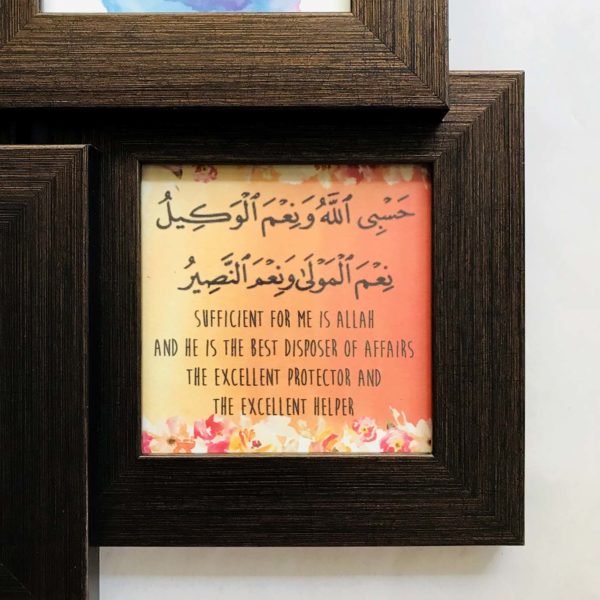 حَسْبِى ٱللَّهُ وَنِعْمَ ٱلْوَكِيلُ
نِعْمَ ٱلْمَوْلَىٰ وَنِعْمَ ٱلنَّصِيرُ
SUFFICIENT FOR ME IS ALLAH
AND HE IS THE BEST DISPOSER OF AFFAIRS
THE EXCELLENT PROTECTOR AND
THE EXCELLENT HELPER